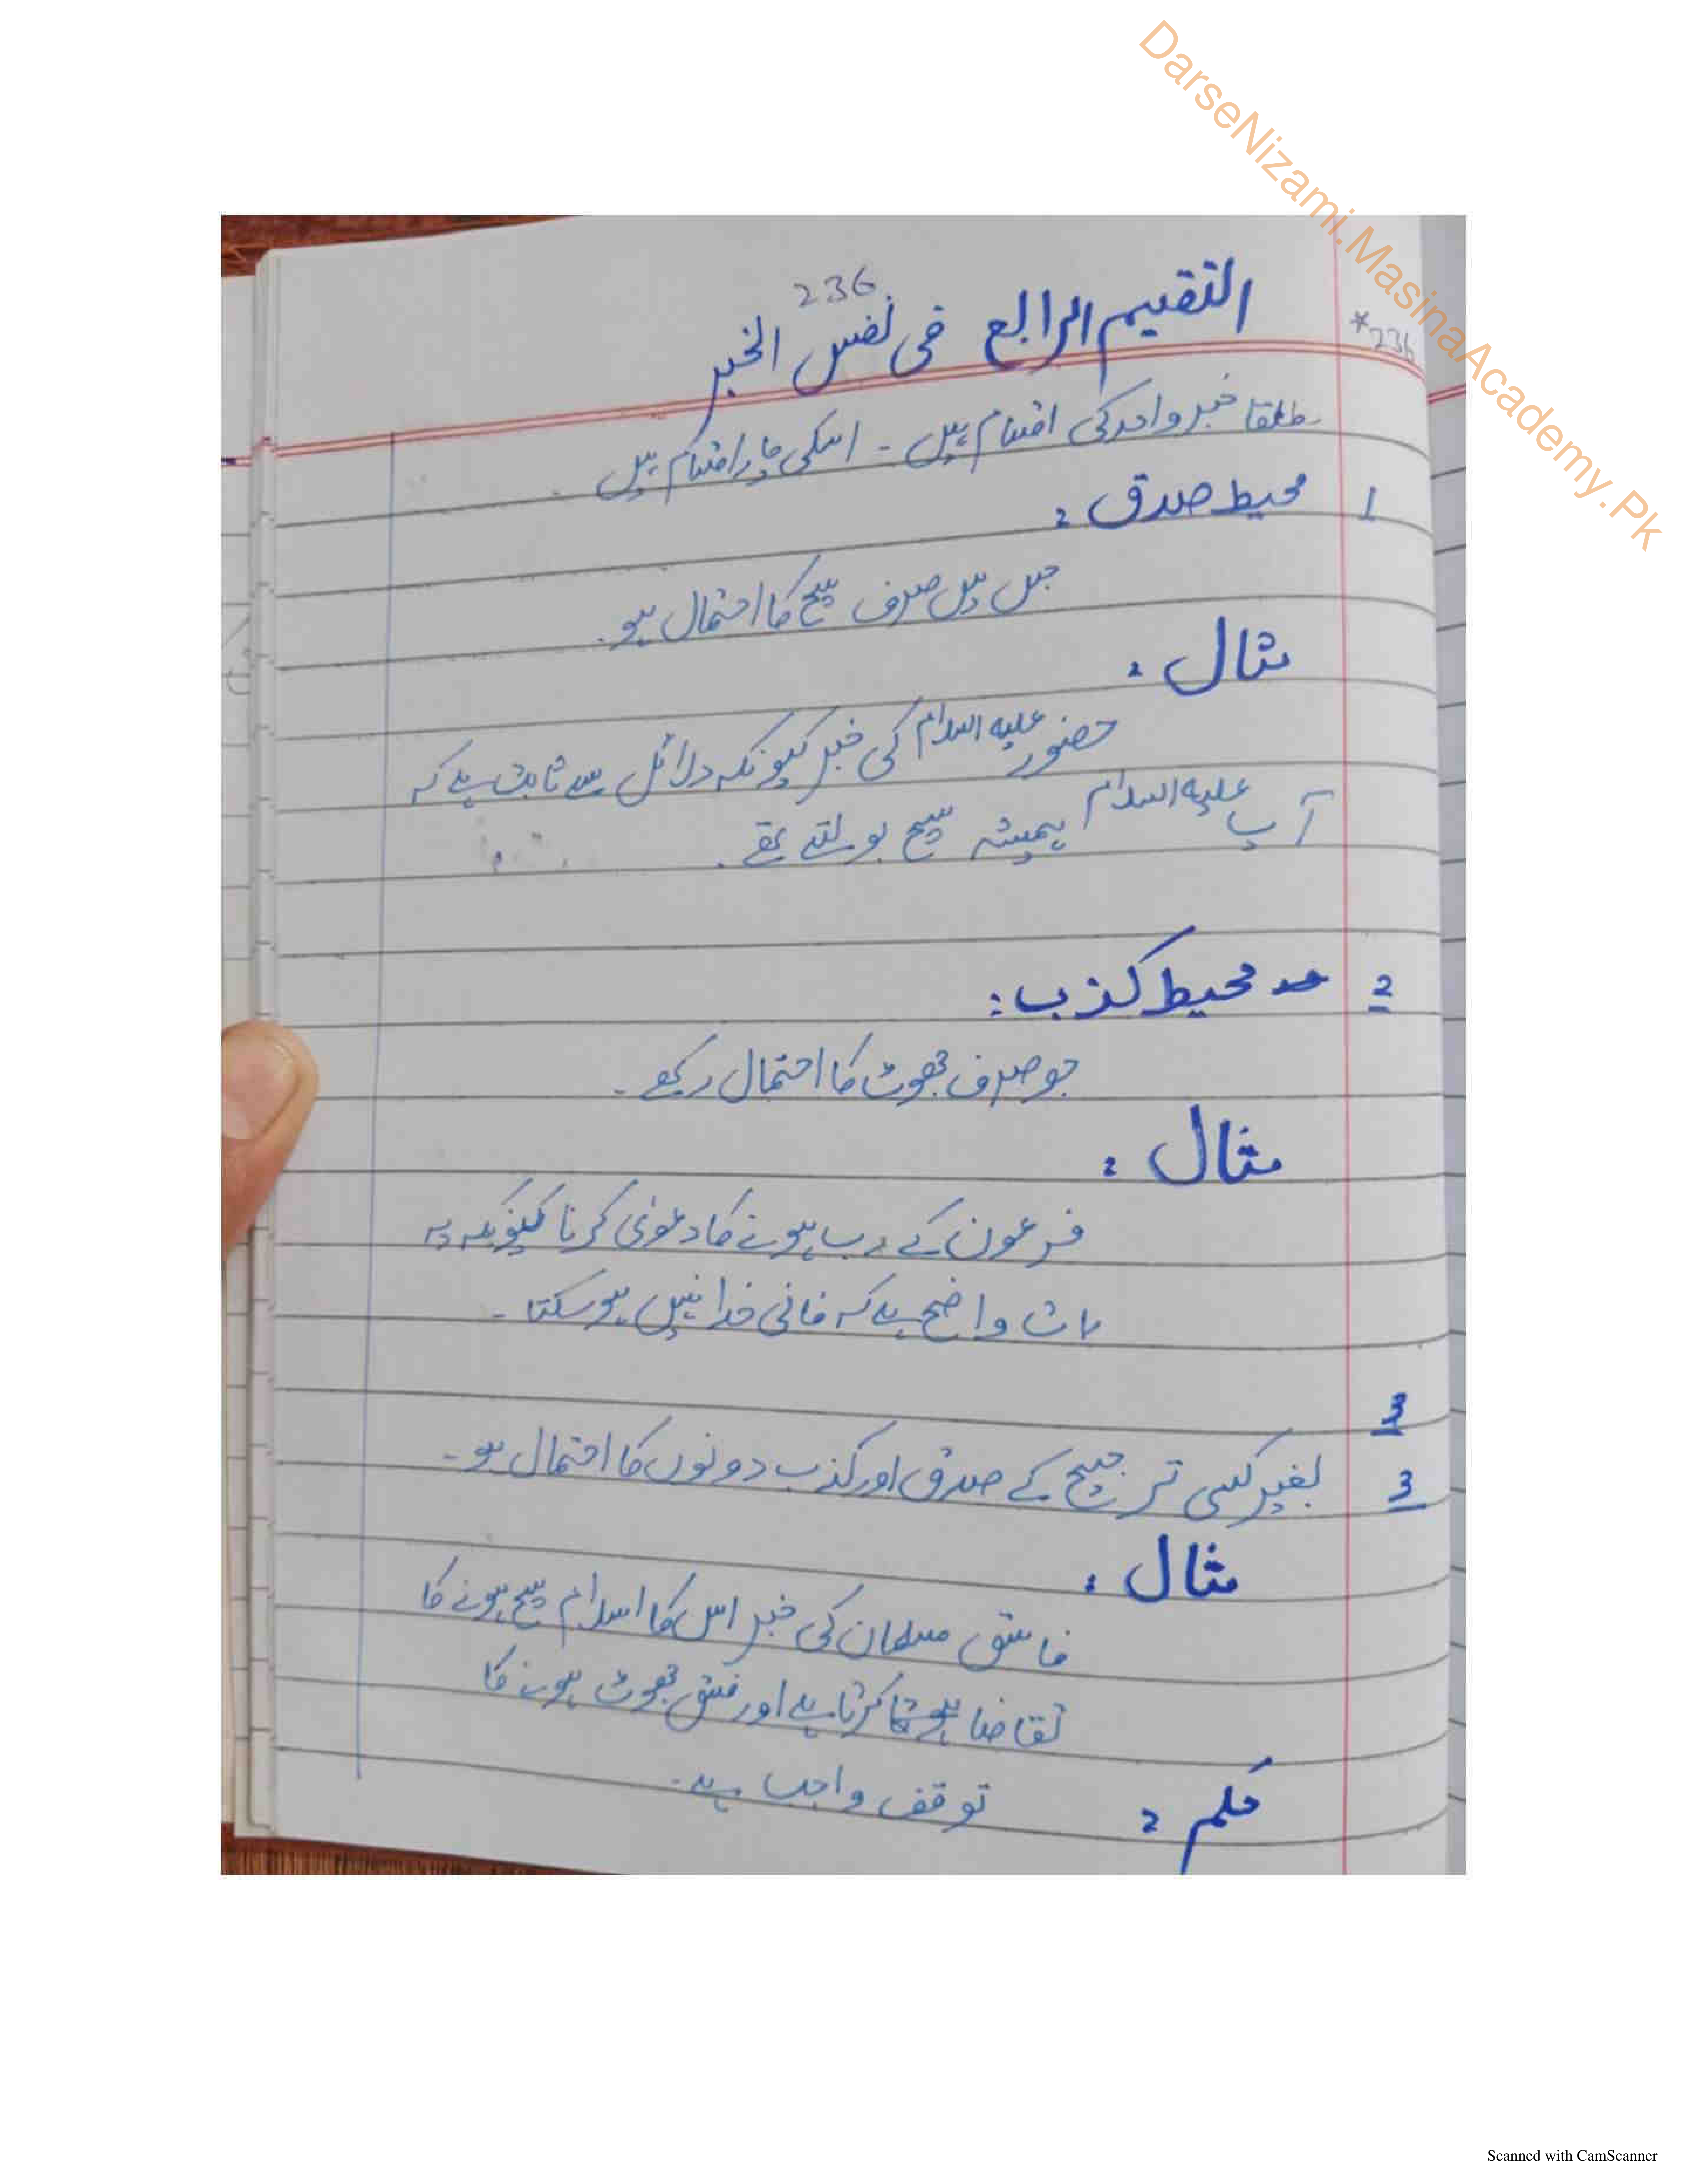 DarseNizami.MasinaAcademy.Pk
236
*236
التقسیم الرابع فی نفس الخبر
مطلقا خبر واحد کی اقسام ہیں ۔ اسکی چار اقسام ہیں ۔
1 محیط صدق :
جس میں صرف سچ کا احتمال ہو ۔
مثال :
حضور علیہ السلام کی خبر کیونکہ دلائل سے ثابت ہے کہ
آپ علیہ السلام ہمیشہ سچ بولتے تھے ۔
2 محیط کذب :
جو صرف جھوٹ کا احتمال رکھے ۔
مثال :
فرعون کے رب ہونے کا دعوٰی کرنا کیونکہ یہ
بات واضح ہے کہ فانی خدا نہیں ہو سکتا ۔
3
3 بغیر کسی ترجیح کے صدق اور کذب دونوں کا احتمال ہو ۔
مثال :
فاسق مسلمان کی خبر اس کا اسلام سچ ہونے کا
تقاضا کرتا ہے اور فسق جھوٹ ہونے کا
حکم : توقف واجب ہے ۔
Scanned with CamScanner